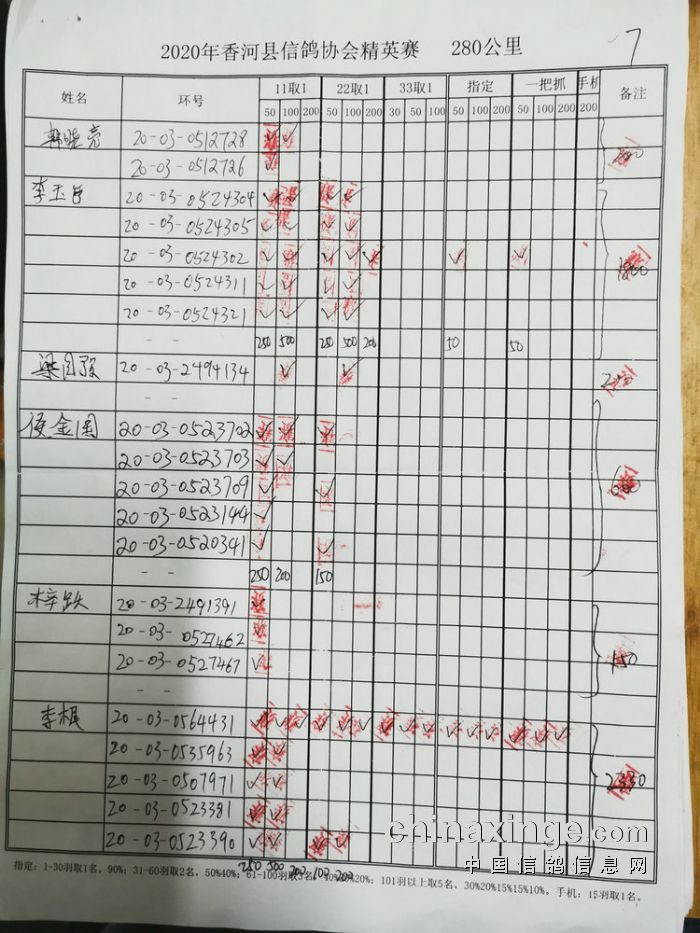 7
2020年香河县信鸽协会精英赛 280公里
姓名 环号 11取1 22取1 33取1 指定 一把抓 手机 备注
50 100 200 50 100 200 30 50 100 50 100 200 50 100 200 200
韩晓亮 20-03-0512728
20-03-0512726
李玉 20-03-0524304
20-03-0524305
20-03-0524302 1800
20-03-0524311
20-03-0524321
- - 250 500 250 500 200 50 50
梁 20-03-2494134
- -
金国 20-03-0523702
20-03-0523703
20-03-0523709 600
20-03-0523144
20-03-0520341
- - 250 200 150
20-03-2491391
20-03-0527462
20-03-0527467 150
- -
李 20-03-0564431
20-03-0535963
20-03-0507971 2330
20-03-0523381
20-03-0523390
250 500 200 100 200
指定：1-30羽取1名，90%；31-60羽取2名，50%40%；61-100羽取3名，40%30%20%；101羽以上取5名，30%20%15%15%10%。手机：15羽取1名。
chinaxinge.com
中国信鸽信息网